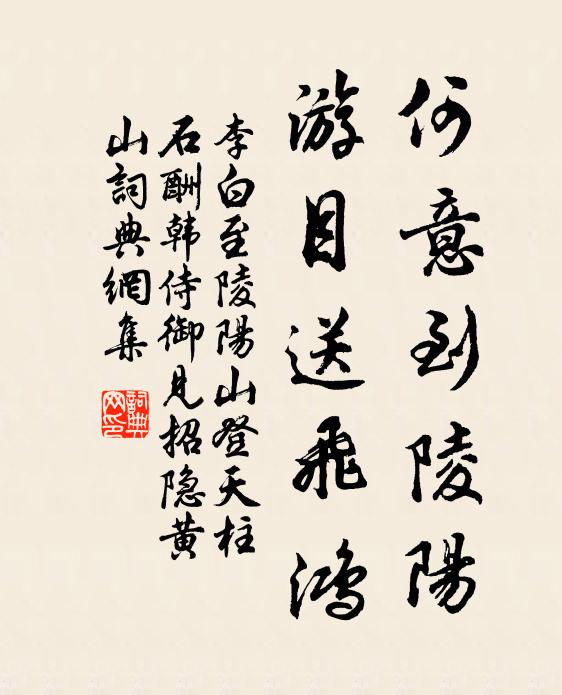 何意到陵陽
游目送飛鴻
李白至陵陽山登天柱
石酬韩侍御見招隐黄
山詞典網集
詞典网印